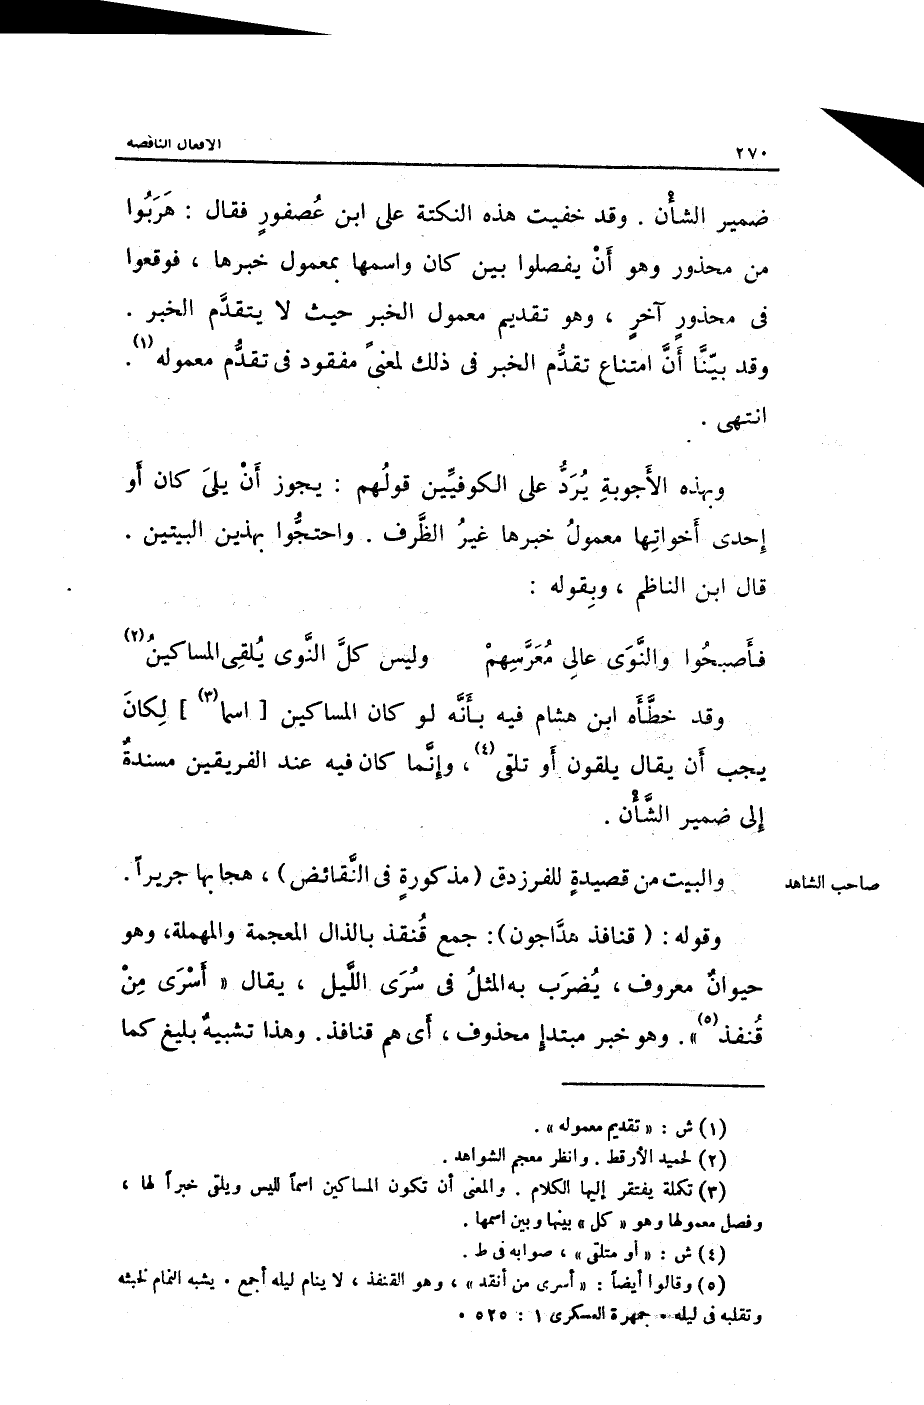 ٢٧٠
الافعال الناقصة
ضمير الشأْن . وقد خفيت هذه النكتة على ابن عُصفورٍ فقال : هَرَبُوا
من محذور وهو أَنْ يفصلوا بين كان واسمها بمعمول خبرها ، فوقعوا
فى محذورٍ آخرٍ ، وهو تقديم معمول الخبر حيث لا يتقدَّم الخبر .
وقد بيّنَّا أَنَّ امتناع تقدُّم الخبر فى ذلك لمعنىً مفقود فى تقدُّم معموله(١).
انتهى .
وبهذه الأَجوبةِ يُرَدُّ على الكوفيِّين قولُهم : يجوز أَنْ يلىَ كان أَو
إِحدى أَخواتِها معمولُ خبرها غيرُ الظَّرف . واحتجُّوا بهذين البيتين .
قال ابن الناظم ، وبِقوله :
فأَصبحُوا والنَّوَى عالِى مُعَرَّسِهمْ وليس كلَّ النَّوى يُلقِى المساكينُ(٢)
وقد خطَّأَه ابن هشام فيه بأَنَّه لو كان المساكين [ اسما(٣) ] لِكانَ
يجب أَن يقال يلقون أَو تلقى(٤)، وإِنَّما كان فيه عند الفريقين مسندةٌ
إِلى ضمير الشَّأْن .
والبيت من قصيدةٍ للفرزدق (مذكورةٍ فى النَّقائض) ، هجا بها جريراً.
صاحب الشاهد
وقوله : ( قنافذ هدَّاجون): جمع قُنفذ بالذال المعجمة والمهملة، وهو
حيوانٌ معروف ، يُضرَب به المثلُ فى سُرَى اللَّيل ، يقال « أَسْرَى مِنْ
قُنفذ(٥)». وهو خبر مبتدإ محذوف ، أَى هم قنافذ. وهذا تشبيهٌ بليغ كما
(١) ش : « تقديم معموله » .
(٢) لحميد الأرقط . وانظر معجم الشواهد .
(٣) تكلة يفتقر إليها الكلام . والمعنى أن تكون المساكين اسماً لليس ويلقى خبراً لها ،
وفصل معمولها وهو « كل » بينها وبين اسمها .
(٤) ش : « أو متلقى » ، صوابه فى ط .
(٥) وقالوا أيضاً : « أسرى من أنقد » ، وهو القنفذ ، لا ينام ليله أجمع . يشبه النمام لخبثه
وتقلبه فى ليله . جمهرة العسكرى ١ : ٥٢٥ .